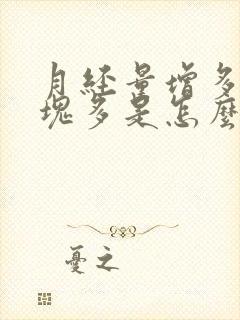 月经量增多
塊多是怎麼
憂之